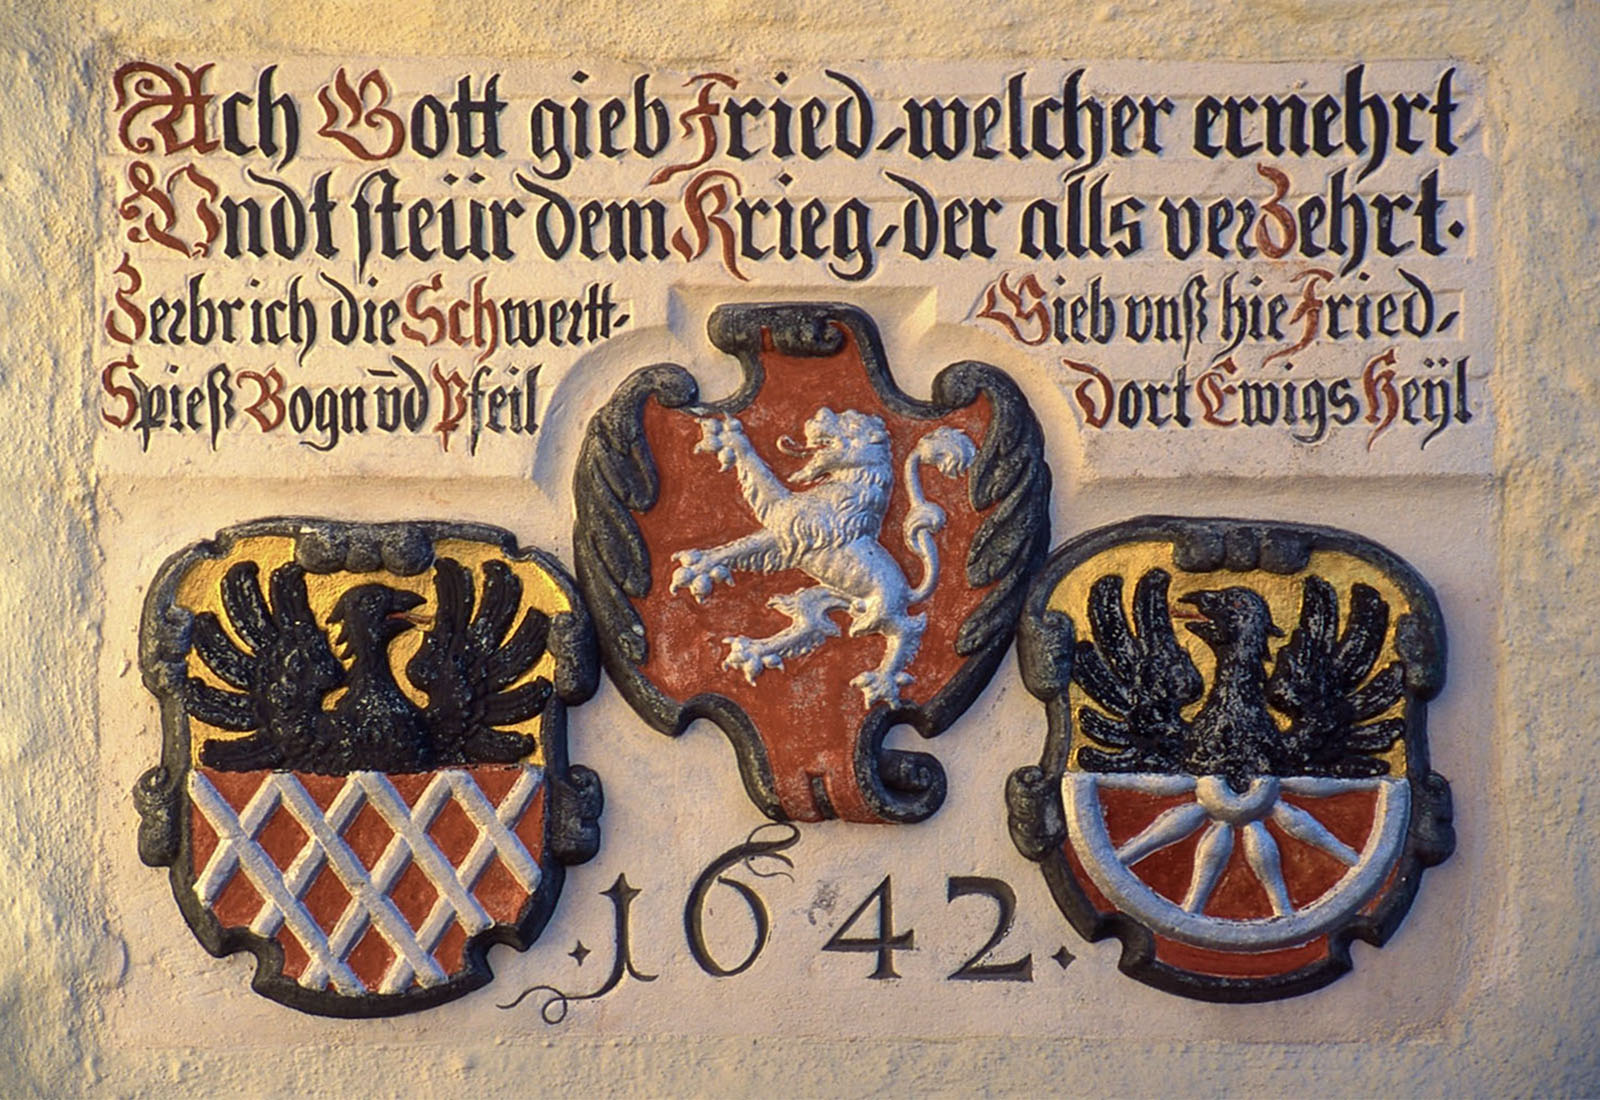 Ach Gott gieb Fried, welcher ernehrt
Vndt steür dem Krieg, der alls verZehrt.
Zerbrich die Schwertt,
Spieß Bogn v̄d Pfeil
Gieb vnß hie Fried,
Dort Ewigs Heÿl
.1642.